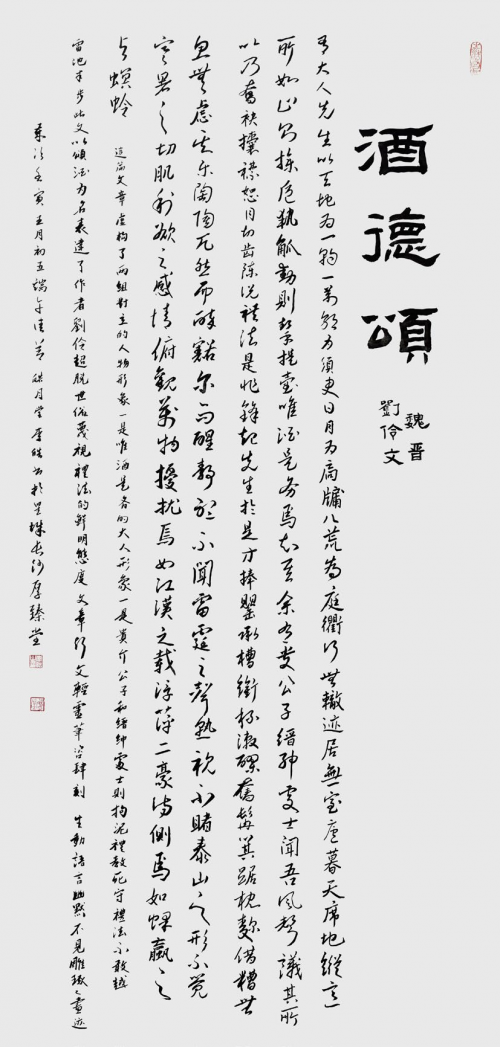 酒德頌
魏晋
劉伶文
有大人先生以天地为一朝一萬期为須臾日月为扃牖八荒為庭衢行無轍迹居無室廬暮天席地縱意
所如止則操卮執觚動則挈榼提壺唯酒是务焉知其余有贵公子缙紳處士闻吾风聲議其所
以乃奮袂攘襟怒目切齒陈说禮法是非鋒起先生於是方捧罌承槽銜杯漱醪奮髯箕踞枕麴借糟無
思無慮其乐陶陶兀然而醉豁尔而醒静聽不闻雷霆之聲熟視不睹泰山之形不覺
寒暑之切肌利欲之感情俯觀萬物擾擾焉如江漢之载浮萍二豪侍側焉如蜾蠃之
与螟蛉 這篇文章虚构了两组對立的人物形象一是唯酒是务的大人形象一是贵介公子和缙紳處士則拘泥禮教死守禮法不敢越
雷池半步此文以頌酒为名表達了作者劉伶超脱世俗蔑視禮法的鮮明態度文章行文輕靈筆 生動語言幽默不見雕琢之 迹
歲次壬寅五月初五端午佳节 月堂厚皓书於星城長沙厚臻堂